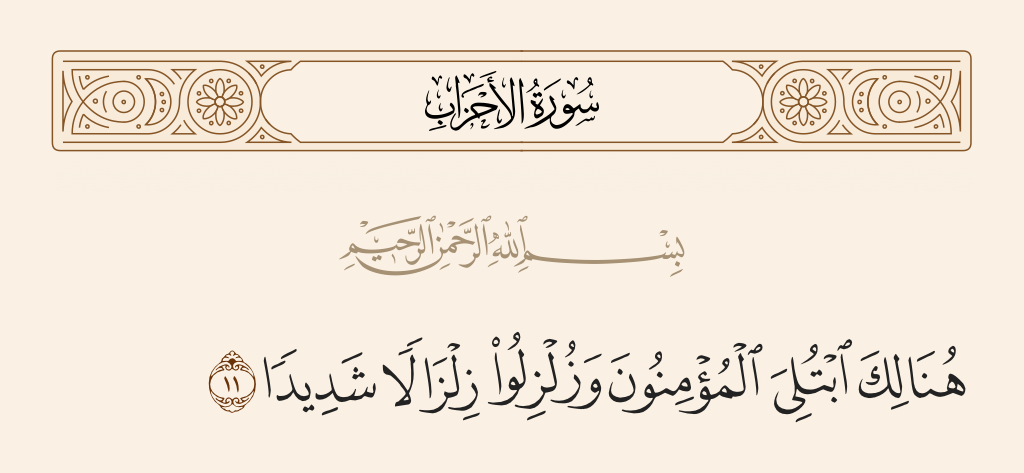 سُورَةُ الأَحْزَابِ
بِسْمِ ٱللَّهِ ٱلرَّحْمَٰنِ ٱلرَّحِيمِ
هُنَالِكَ ٱبْتُلِىَ ٱلْمُؤْمِنُونَ وَزُلْزِلُوا۟ زِلْزَالًا شَدِيدًا ١١